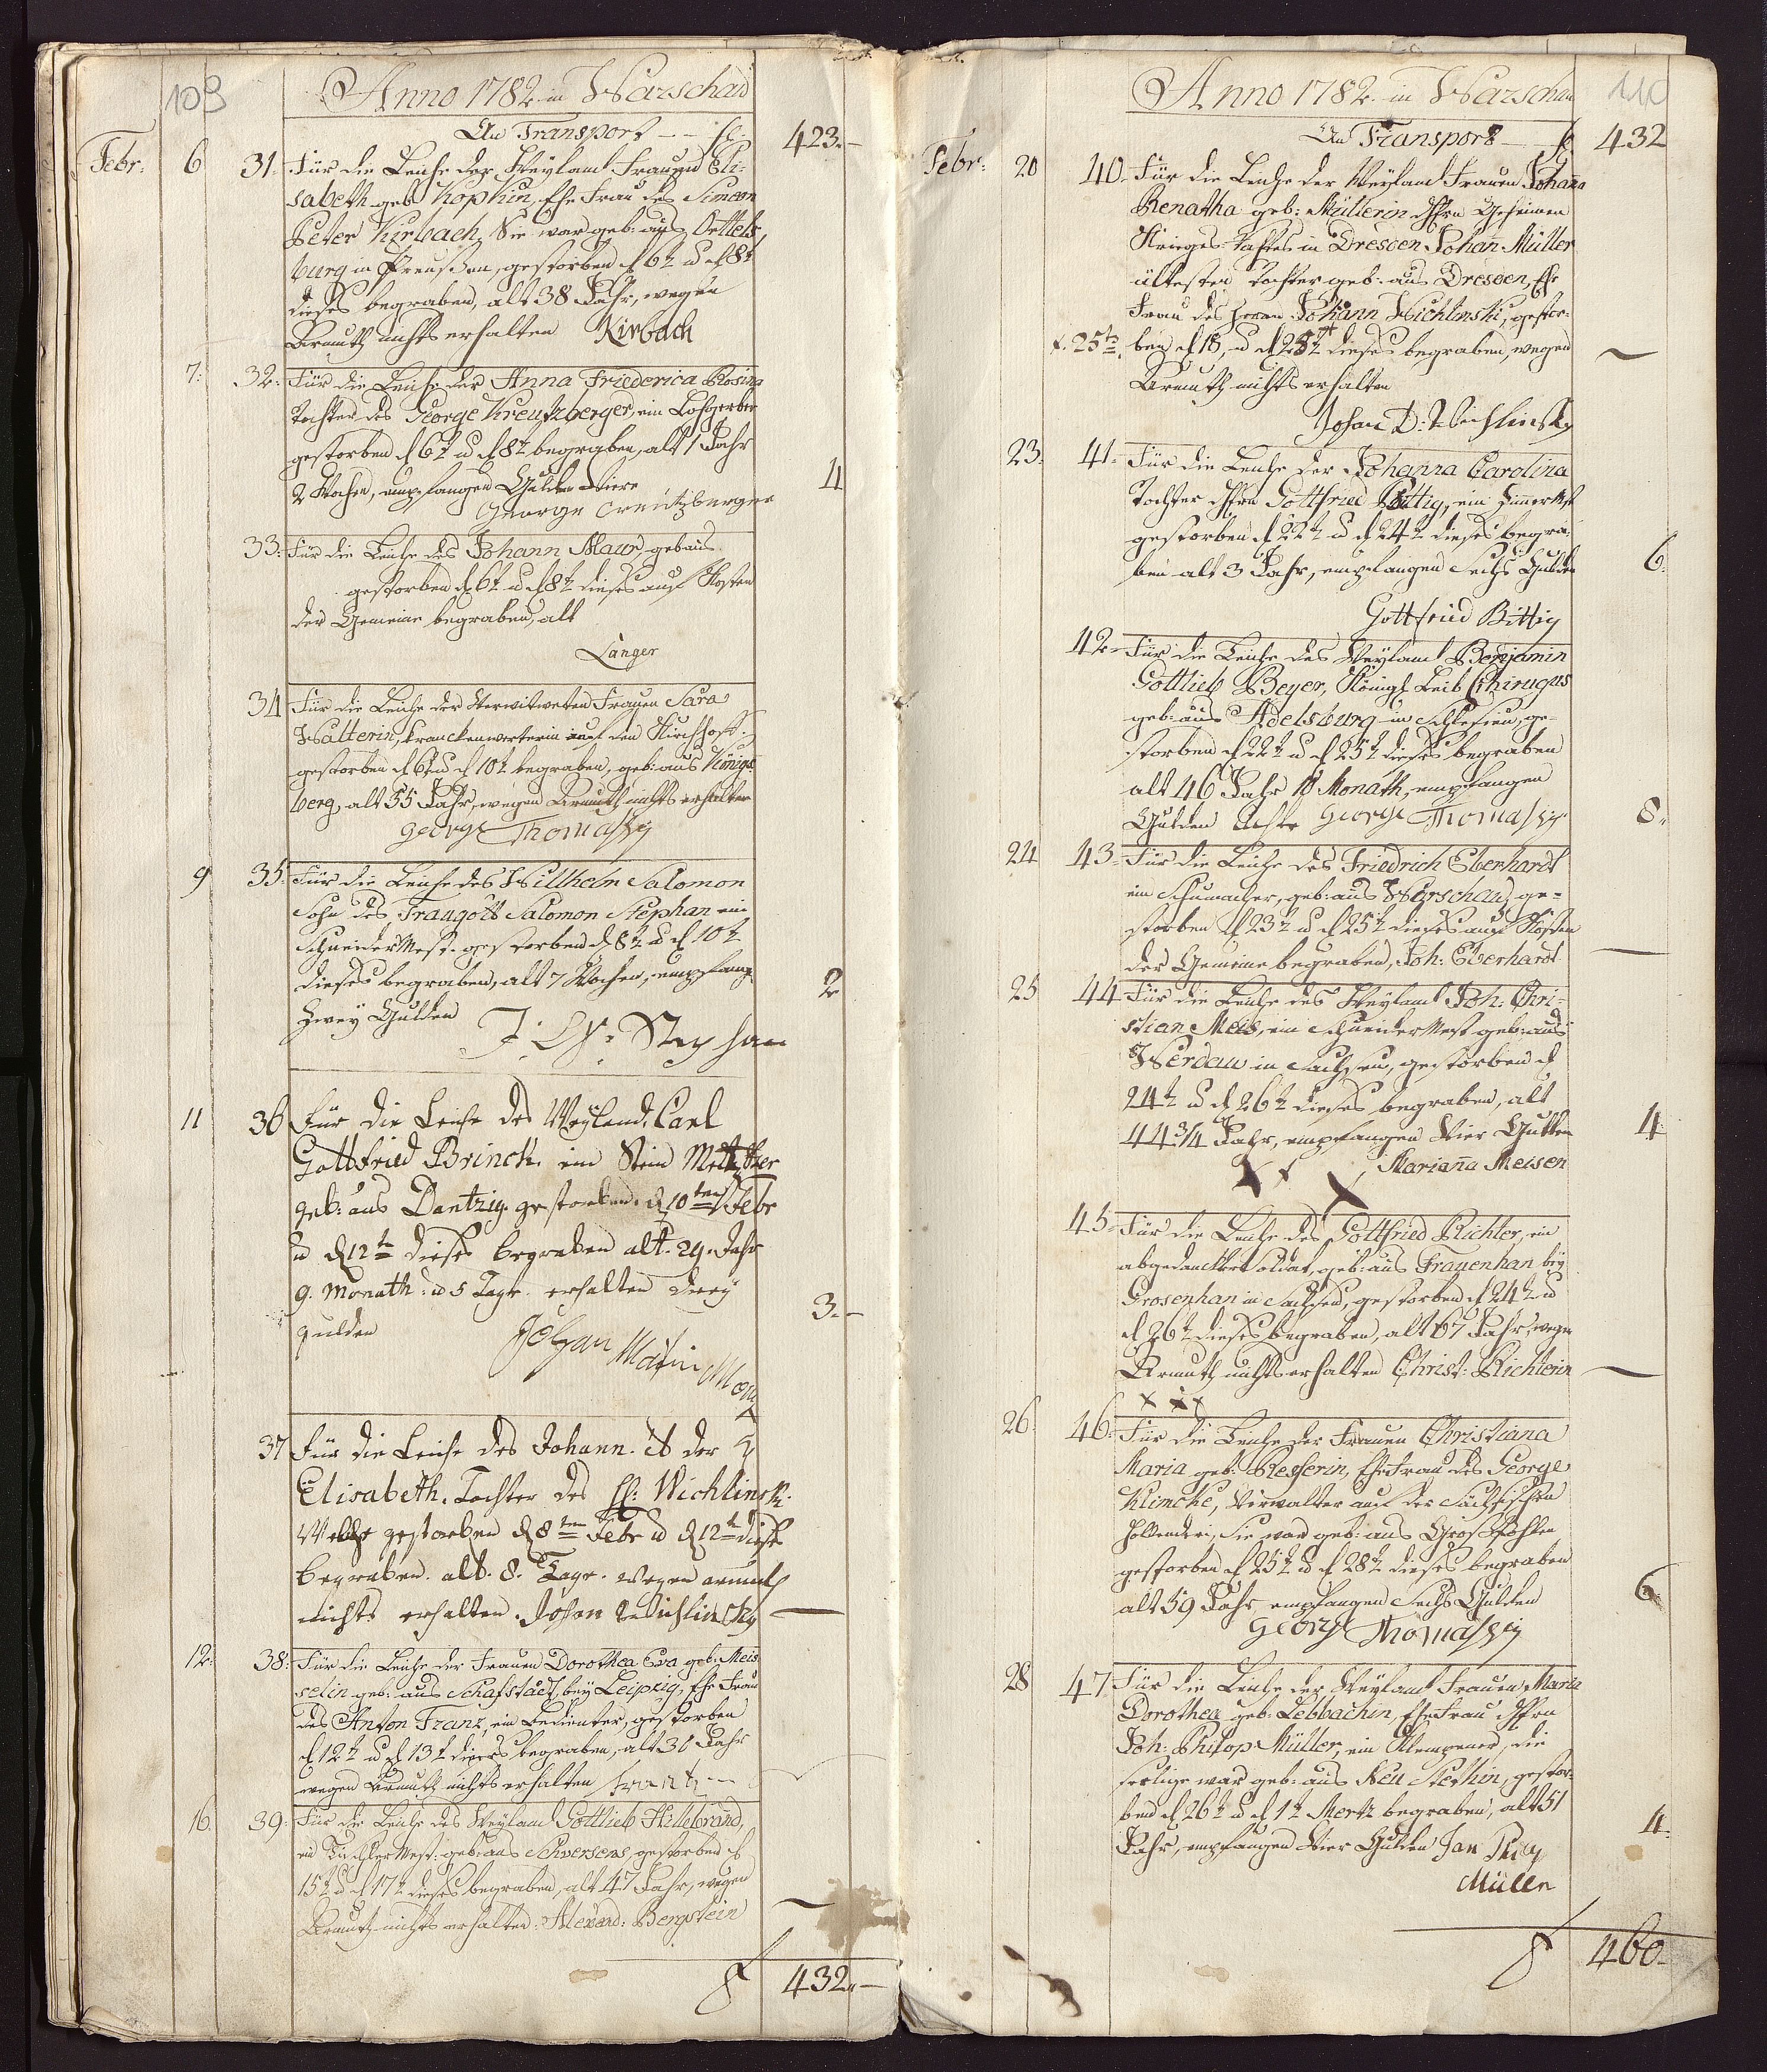 109
Anno 1782 in Warschau
An Transport - - fl.
423.-
Febr: 6 31. Für die Leiche der Weyland Frauen Eli-
sabeth geb: Kopkin, Ehe Frau des Simeon
Peter Kirbach, Sie war geb: aus Ortels
burg in Preußen, gestorben d 6t u d 8t
dieses begraben, alt 38 Jahr, wegen
Armuth nichts erhalten Kirbach
7: 32: Für die Leiche der Anna Friederica Rosina
Tochter des George Kreutzberger, ein Lohgerber
gestorben d 6t u d 8t begraben, alt 1 Jahr
2 Wochen, empfangen Gulden Viere 4
George Creutzberger
33: Für die Leiche des Johann Maur, geb: aus
gestorben d 6t u d 8t dieses auf Kosten
der Gemeine begraben, alt
Langer
34 Für die Leiche der Verwitweten Frauen Sara
Walterin, Kranckenwerterin auf den Kirchhoff.
gestorben d 6t u d 10t begraben, geb: aus Königs
berg, alt 55 Jahr, wegen Armuth nichts erhalten
George Thomaßy
9 35: Für die Leiche des Willhelm Salomon
Sohn des Traugott Salomon Stephan ein
Schneider Mest. gestorben d 8t u d 10t
dieses begraben, alt 7 Wochen, empfang 2
Zwey Gulden
Stephan
11 36 Für die Leiche des Weyland. Carl
Gottfried Brinck. ein Stein Metzer
geb: aus Dantzig. gestorben. d 10ten Febr
u d 12te dieses begraben alt. 29. Jahr
9. Monath: u 5 Tage. erhalten drey
gulden 3.-
Johan
37 Für die Leiche des Johann. u der
Elisabeth. Tochter des H: Wichlinsk.
gestorben d 8ten Febr u d 12t dieses
begraben. alt. 8. Tage. wegen armuth
nichts erhalten. Johan Wichlinsky —
12: 38: Für die Leiche der Frauen Dorothea Eva geb: Meis
selin geb: aus Schafstädt, bey Leipzig, Ehe Frau
des Anton Franz, ein Bedienter, gestorben
d 12t u d 13t dieses begraben, alt 36 Jahr
wegen Armuth nichts erhalten Frantz
16. 39: Für die Leiche des Weyland Gottlieb Hillebrand,
ein Tischler Mest: geb: aus Schwersens, gestorben d
15t u d 17t dieses begraben, alt 47 Jahr, wegen
Armuth nichts erhalten: Alexand: Bergstein —
f 432.-
110
Anno 1782. in Warschau
An Transport - fl.
432
Febr: 20 40. Für die Leiche der Weyland Frauen Johana
Renatha geb: Müllerin Herrn Geheimen
Krieges-Rathes in Dresden, Johan Müller
ältesten Tochter geb: aus Dresden, Ehe
Frau des Herrn Johann Wichlinski, gestor-
25te ben d 18, u d 28t dieses begraben, wegen —
Armuth nichts erhalten
Johan D: Wichlinsky
23: 41. Für die Leiche der Johanna Carolina
Tochter Herrn Gottfried Bittig, ein Zimer Mst
gestorben d 22t u d 24t dieses begra-
ben alt 3 Jahr, empfangen Sechs Gulden 6.
Gottfried Bittig
42. Für die Leiche des Weyland Benjamin
Gottlieb Beyer, Königl Leib Chirugus
geb: aus Adelsburg in Schlesien, ge-
storben d 22t u d 25t dieses begraben
alt 46 Jahr 10 Monath, empfangen
Gulden Achte George Thomaßy 8.
24 43. Für die Leiche des Friedrich Eberhardt
ein Schumacher, geb: aus Warschau, ge-
storben d 23t u d 25t dieses auf Kosten
der Gemeine begraben, Joh: Eberhardt —
25 44. Für die Leiche des Weyland Joh: Chri-
stian Meis, ein Schneider Mest geb: aus
Werdau in Sachsen, gestorben d
24t u d 26t dieses begraben, alt
44 3/4 Jahr, empfangen Vier Gulden 4.
X X X Mariana Meisen
45. Für die Leiche des Gottfried Richter, ein
abgedanckter Soldat, geb: aus Frauenhan bey
Grosenhan in Sachsen, gestorben d 24t u
d 26t dieses begraben, alt 67 Jahr, wegen
Armuth nichts erhalten Christ: Richterin —
X X X
26. 46. Für die Leiche der Frauen Christiana
Maria geb: Resserin, Ehe Frau des George
Klimcke, Verwalter auf der Sächsischen
Hollendern, Sie war geb: aus Groß Pohlen
gestorben d 25t u d 28t dieses begraben
alt 59 Jahr empfangen Sechs Gulden 6
George Thomaßy
28 47 Für die Leiche der Weyland Frauen Maria
Dorothea geb: Lebbachin, Ehe Frau Herrn
Joh: Philop Müller, ein Klempener, die
seelige war geb: aus Neu Stethin, gestor-
ben d 26t u d 1t Mertz begraben, alt 51
Jahr, empfangen Vier Gulden Jan 4.
Müller
f 460.